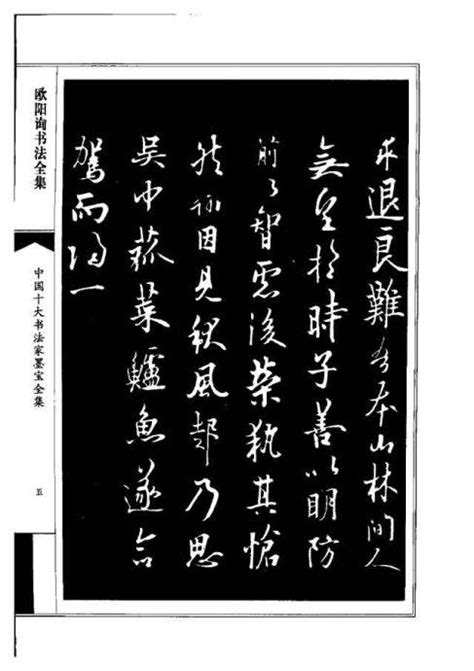 欧阳询书法全集
中国十大书法家墨宝全集
五
求退良難吾本山林間人
無望於時子善以明防
前以智慮後榮執其愴
然翰因見秋風起乃思
吳中菰菜鱸魚遂命
駕而歸一